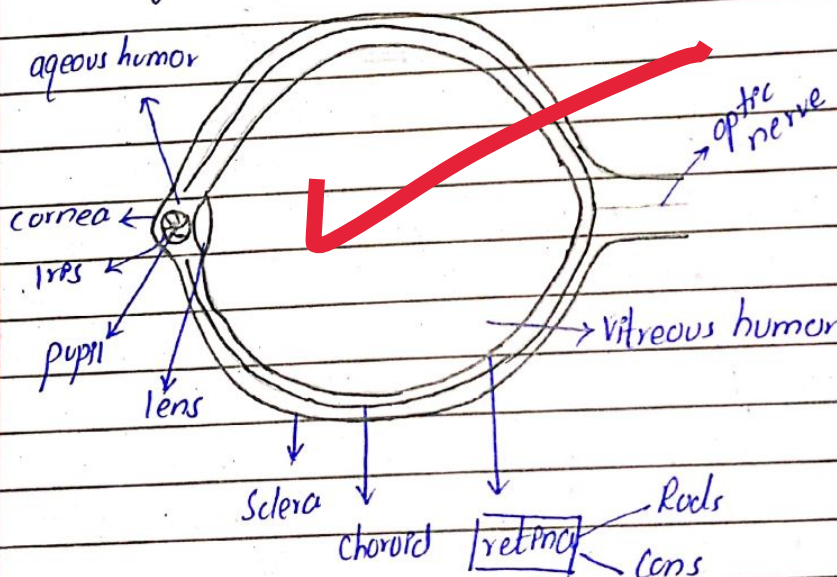 aqeous humor
optic
nerve
cornea
Iris
pupil
lens
vitreous humor
Sclera
choroid
retina
Rods
Cons